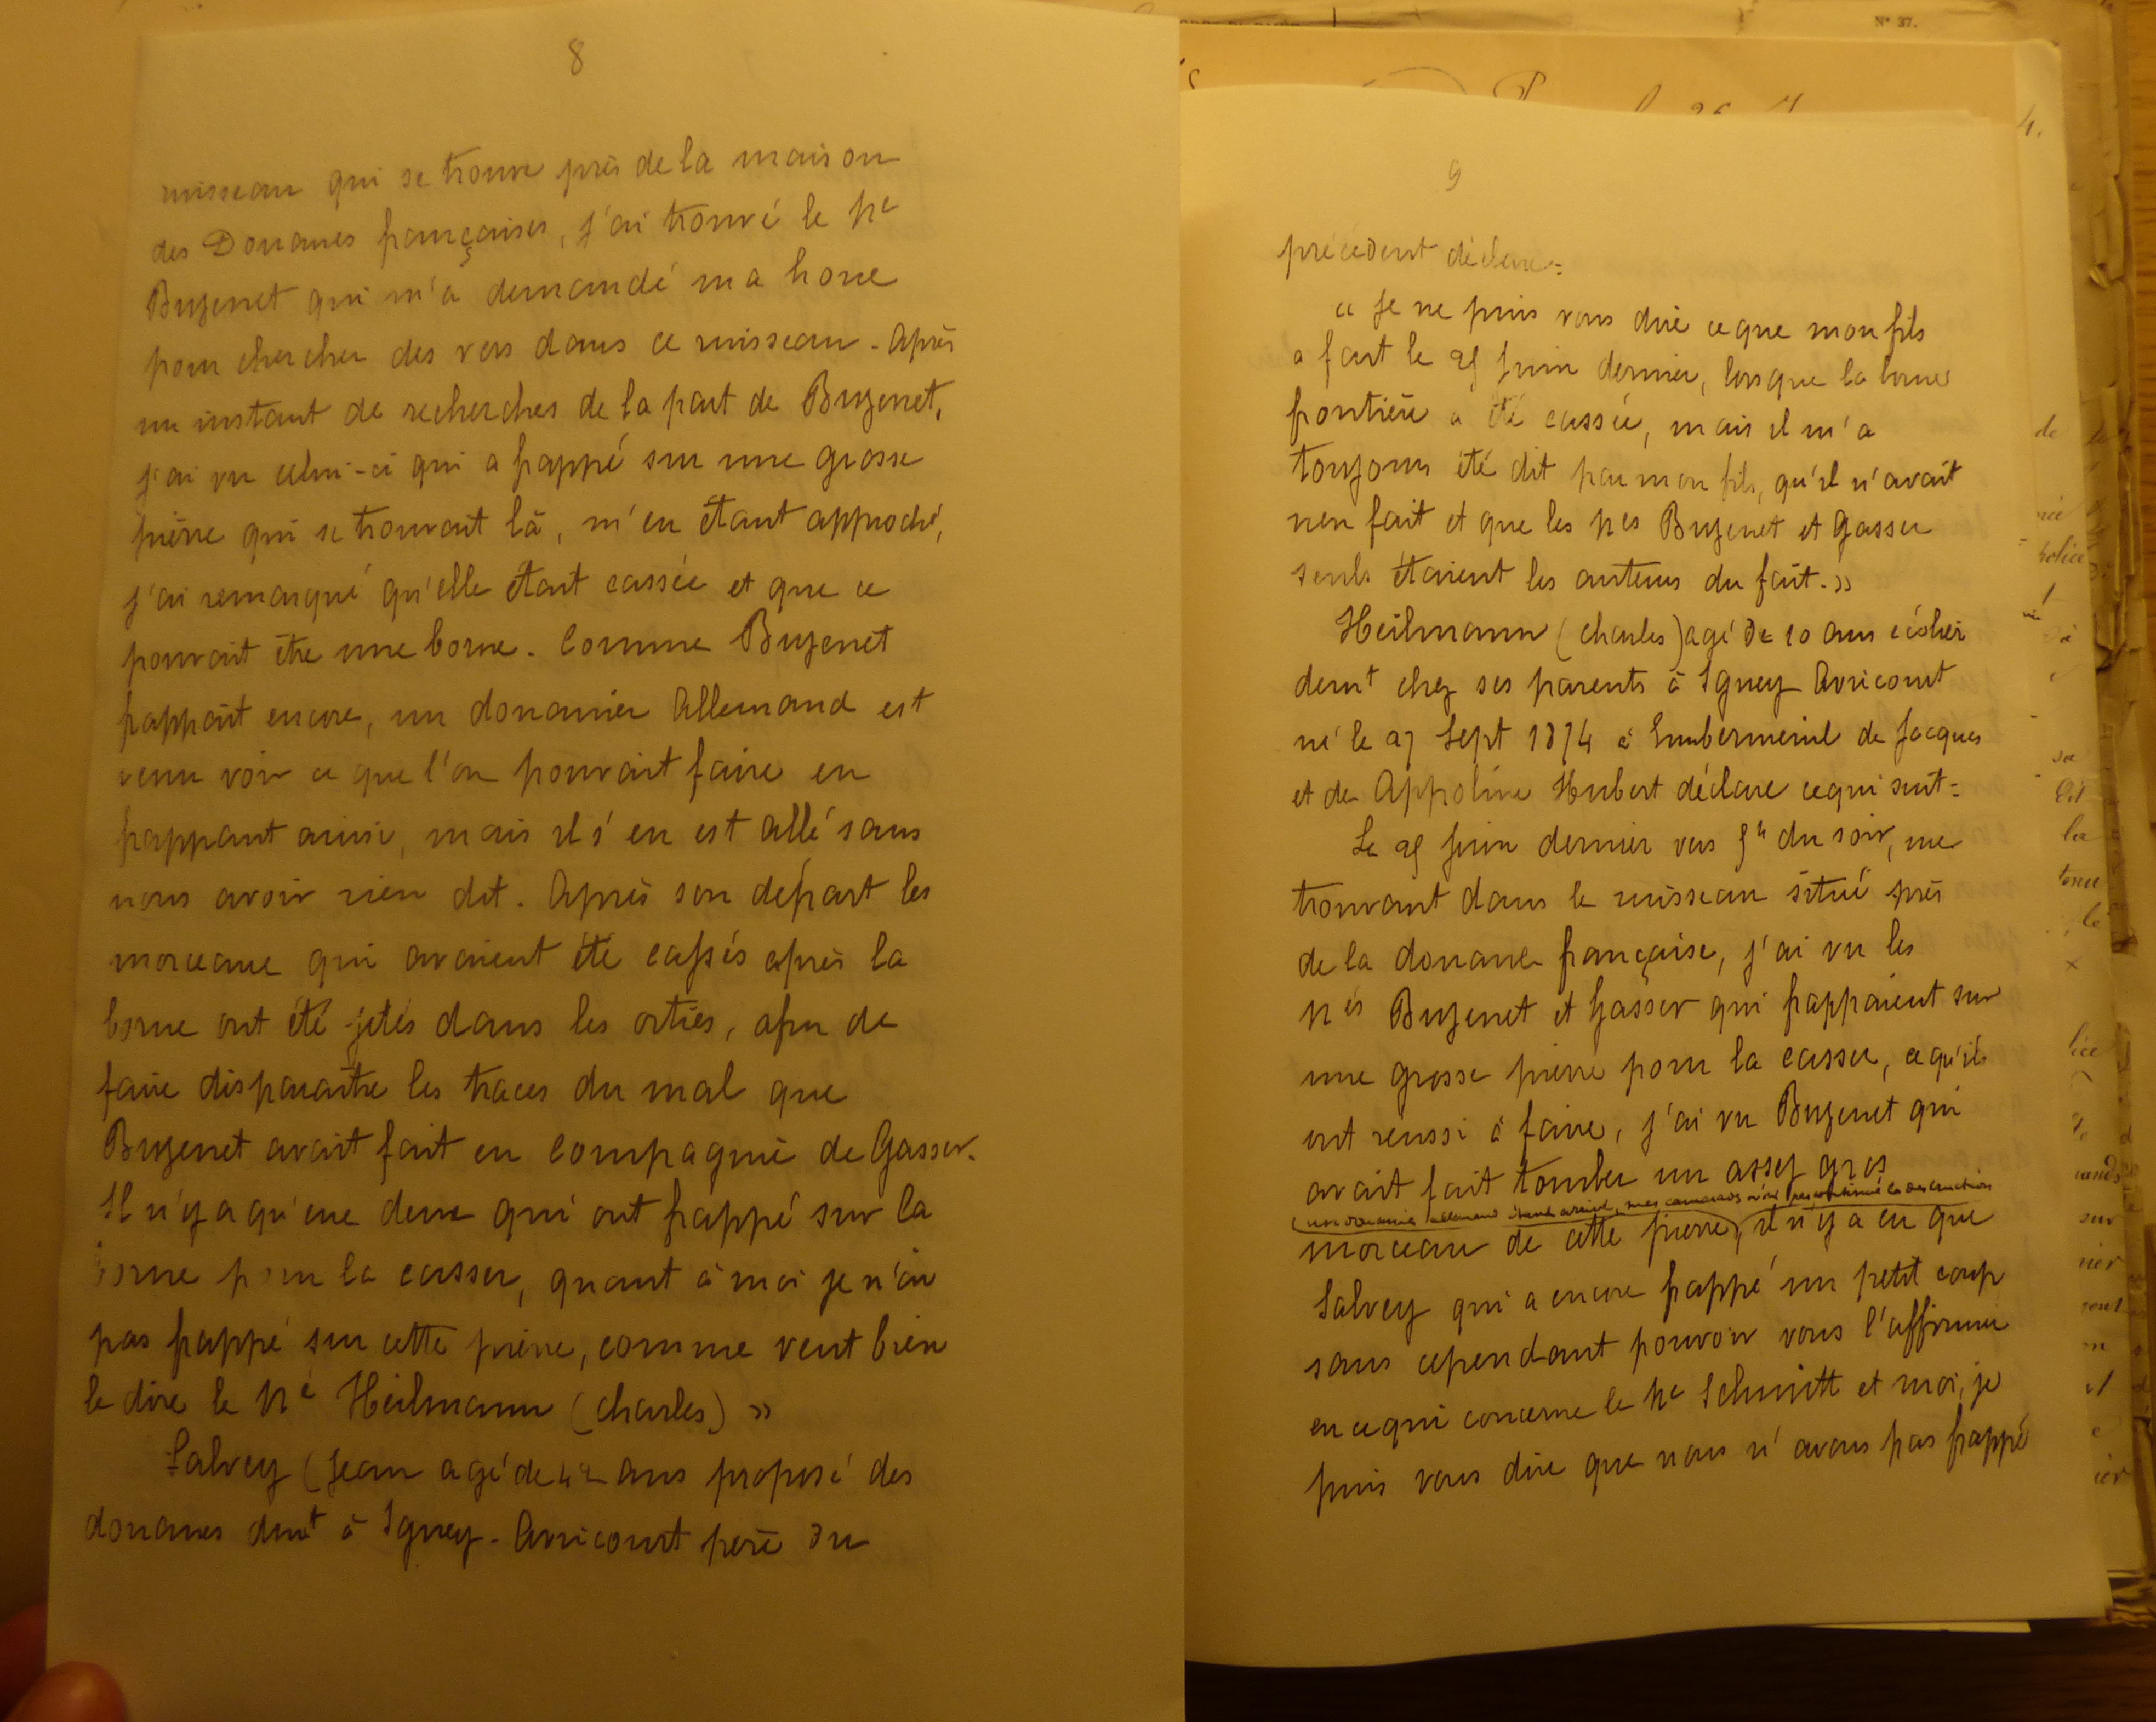 8
ruisseau qui se trouve près de la maison
des Douanes françaises, j'ai trouvé le né
Buzenet qui m'a demandé ma houe
pour chercher des vers dans ce ruisseau. Après
un instant de recherches de la part de Buzenet,
j'ai vu celui-ci qui a frappé sur une grosse
pierre qui se trouvait là, m'en étant approché,
j'ai remarqué qu'elle était cassée et que ce
pouvait être une borne. Comme Buzenet
frappait encore, un douanier Allemand est
venu voir ce que l'on pouvait faire en
frappant ainsi, mais il s'en est allé sans
nous avoir rien dit. Après son départ les
morceaux qui avaient été cassés après la
borne ont été jetés dans les orties, afin de
faire disparaître les traces du mal que
Buzenet avait fait en compagnie de Gasser.
Il n'y a qu'eux deux qui ont frappé sur la
borne pour la casser, quant à moi je n'ai
pas frappé sur cette pierre, comme veut bien
le dire le né Heilmann (Charles) »
Salvey (Jean agé de 42 ans préposé des
douanes demt à Igney-Avricourt père du
9
précédent déclare:
« Je ne puis vous dire ce que mon fils
a fait le 25 Juin dernier, lorsque la borne
frontière a été cassée, mais il m'a
toujours été dit par mon fils, qu'il n'avait
rien fait et que les nés Buzenet et Gasser
seuls étaient les auteurs du fait. »
Heilmann (Charles) agé de 10 ans écolier
demt chez ses parents à Igney Avricourt
né le 27 Sept 1874 à Emberménil de Jacques
et de Appoline Hubert déclare ce qui suit:
Le 25 Juin dernier vers 5h du soir, me
trouvant dans le ruisseau situé près
de la douane française, j'ai vu les
nés Buzenet et Gasser qui frappaient sur
une grosse pierre pour la casser, ce qu'ils
ont réussi à faire, j'ai vu Buzenet qui
avait fait tomber un assez gros
(un douanier allemand étant arrivé, mes camarades n'ont pas continué la destruction
morceau de cette pierre), il n'y a eu que
Salvey qui a encore frappé un petit coup
sans cependant pouvoir vous l'affirmer
en ce qui concerne le né Schmitt et moi, je
puis vous dire que nous n'avons pas frappé
N° 37.
4.
de
police
la
sur